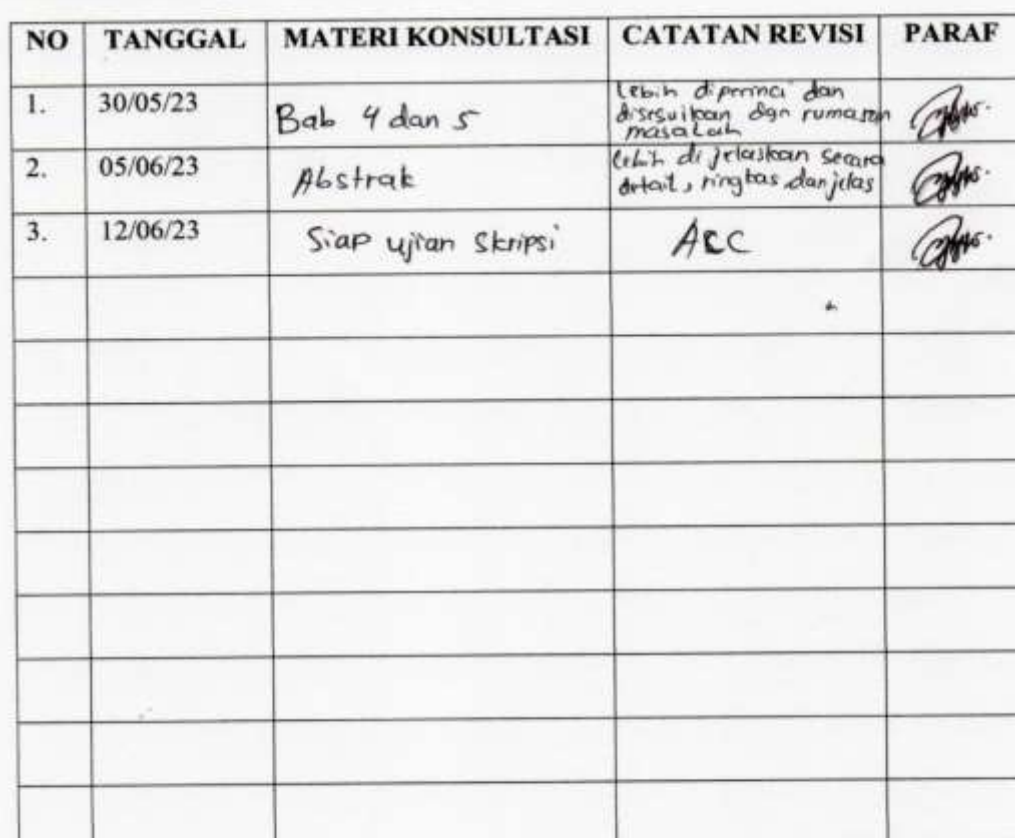 NO TANGGAL MATERI KONSULTASI CATATAN REVISI PARAF
1. 30/05/23 Bab 4 dan 5 Lebih diperinci dan
disesuikan dgn rumasan
masalah
2. 05/06/23 Abstrak Lebih di jelaskan secara
detail, ringkas dan jelas
3. 12/06/23 Siap ujian Skripsi ACC